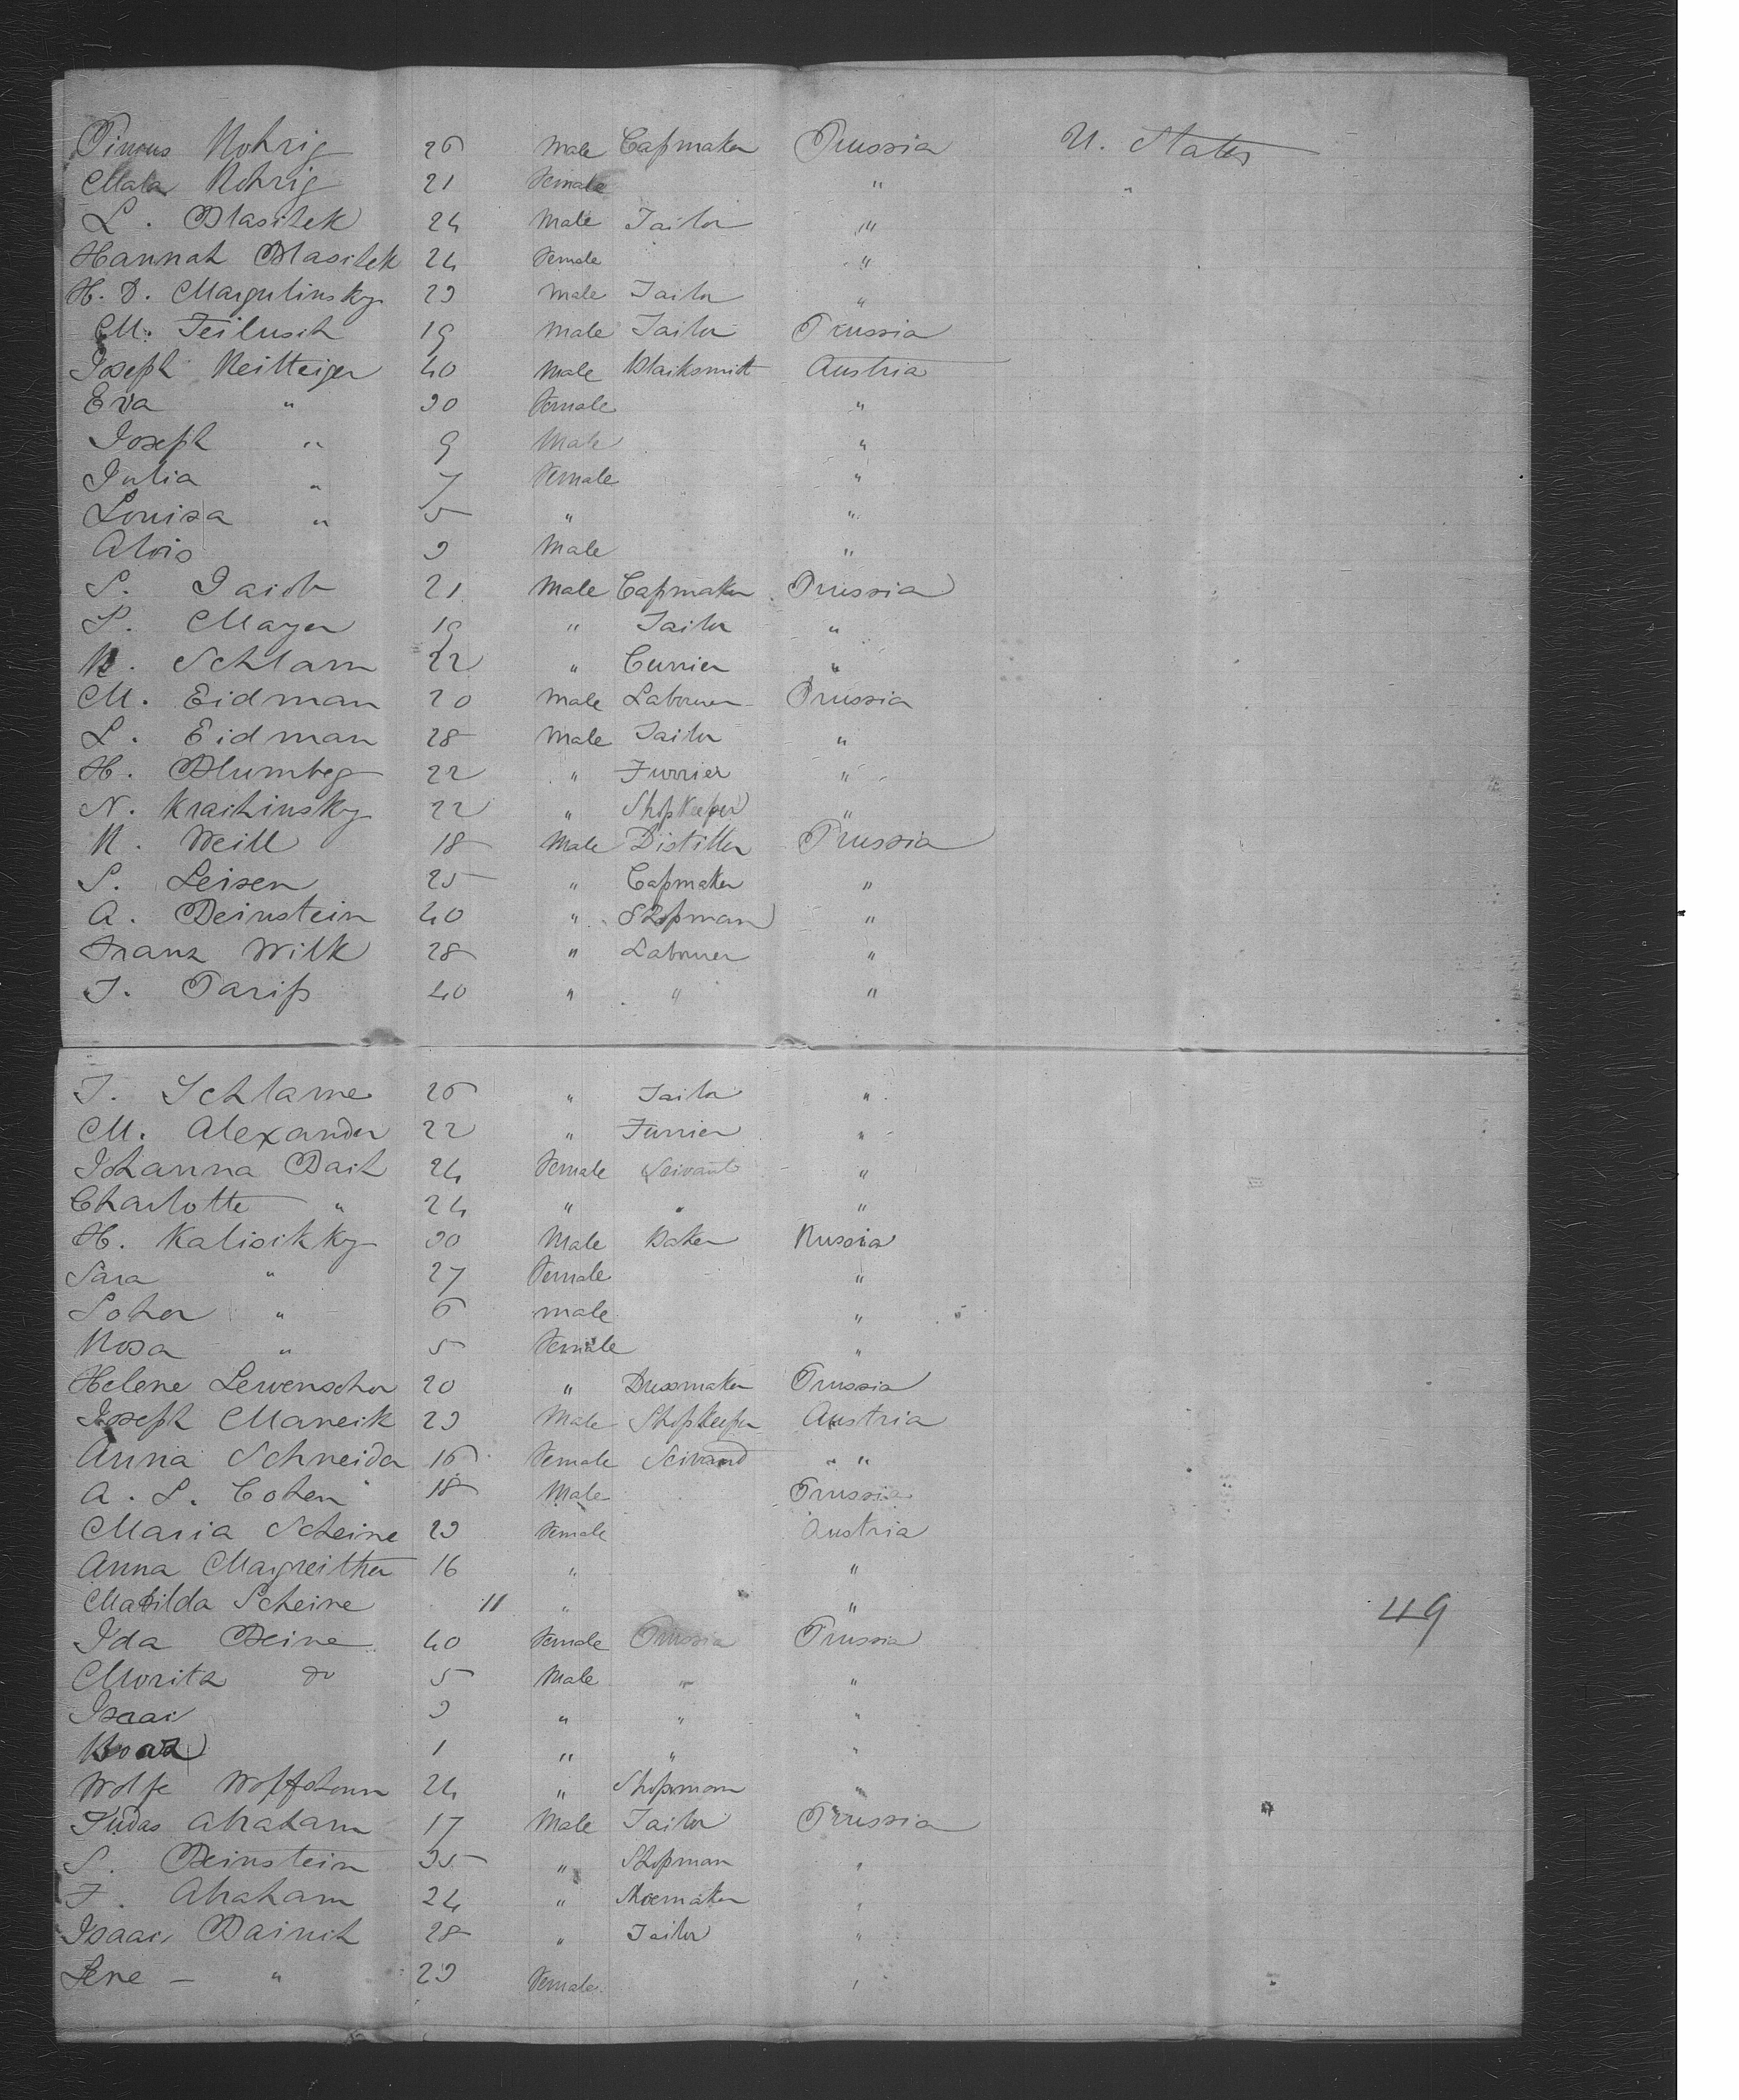 Pincus Rohrig 26 Male Capmaker Prussia U. States
Mala Rohrig 21 Female " "
L. Blaschek 24 Male Tailor "
Hannah Blaschek 24 Female "
H. D. Margulinsky 23 Male Tailor "
M. Teilusch 19 Male Tailor Prussia
Joseph Reitteiger 40 Male Blacksmith Austria
Eva " 30 Female "
Joseph " 9 Male "
Julia " 7 Female "
Louisa " 5 " "
Alois 3 Male "
S. Jacob 21 Male Capmaker Prussia
S. Mayer 19 " Tailor "
R. Schlam 22 " Currier "
M. Eidman 20 Male Labourer Prussia
L. Eidman 28 Male Tailor "
H. Blumbeg 22 " Furrier "
N. Krachinsky 22 " Shopkeeper "
R. Weill 18 Male Distiller Prussia
S. Leisen 25 " Capmaker "
A. Beinstein 40 " Shopman "
Franz Wilk 28 " Labourer "
J. Pariss 40 " " "
J. Schlame 26 " Tailor "
M. Alexander 22 " Furrier "
Johanna Bach 24 Female Servant "
Charlotte " 24 " " "
H. Kalischky 30 Male Baker Russia
Sara " 27 Female "
Soher " 6 male "
Rosa " 5 Female "
Helene Lewenscher 20 " Dressmaker Prussia
Joseph Maneck 23 Male Shopkeeper Austria
Anna Schneider 16 Female Servand " "
A. S. Cohen 18 Male Prussia
Maria Scheine 23 Female Austria
Anna Margreither 16 " "
Matilda Scheine 11 " " 49
Ida Beine 40 Female Prussia Prussia
Moritz do 5 Male " "
Isaac 3 " " "
1 " " "
Wolfe 24 " Shopman "
Judas Abraham 17 Male Tailor Prussia
S. Beinstein 35 " Shopman "
J. Abraham 24 " Shoemaker "
Isaac Bainch 28 " Tailor "
Lene — " 23 Female "